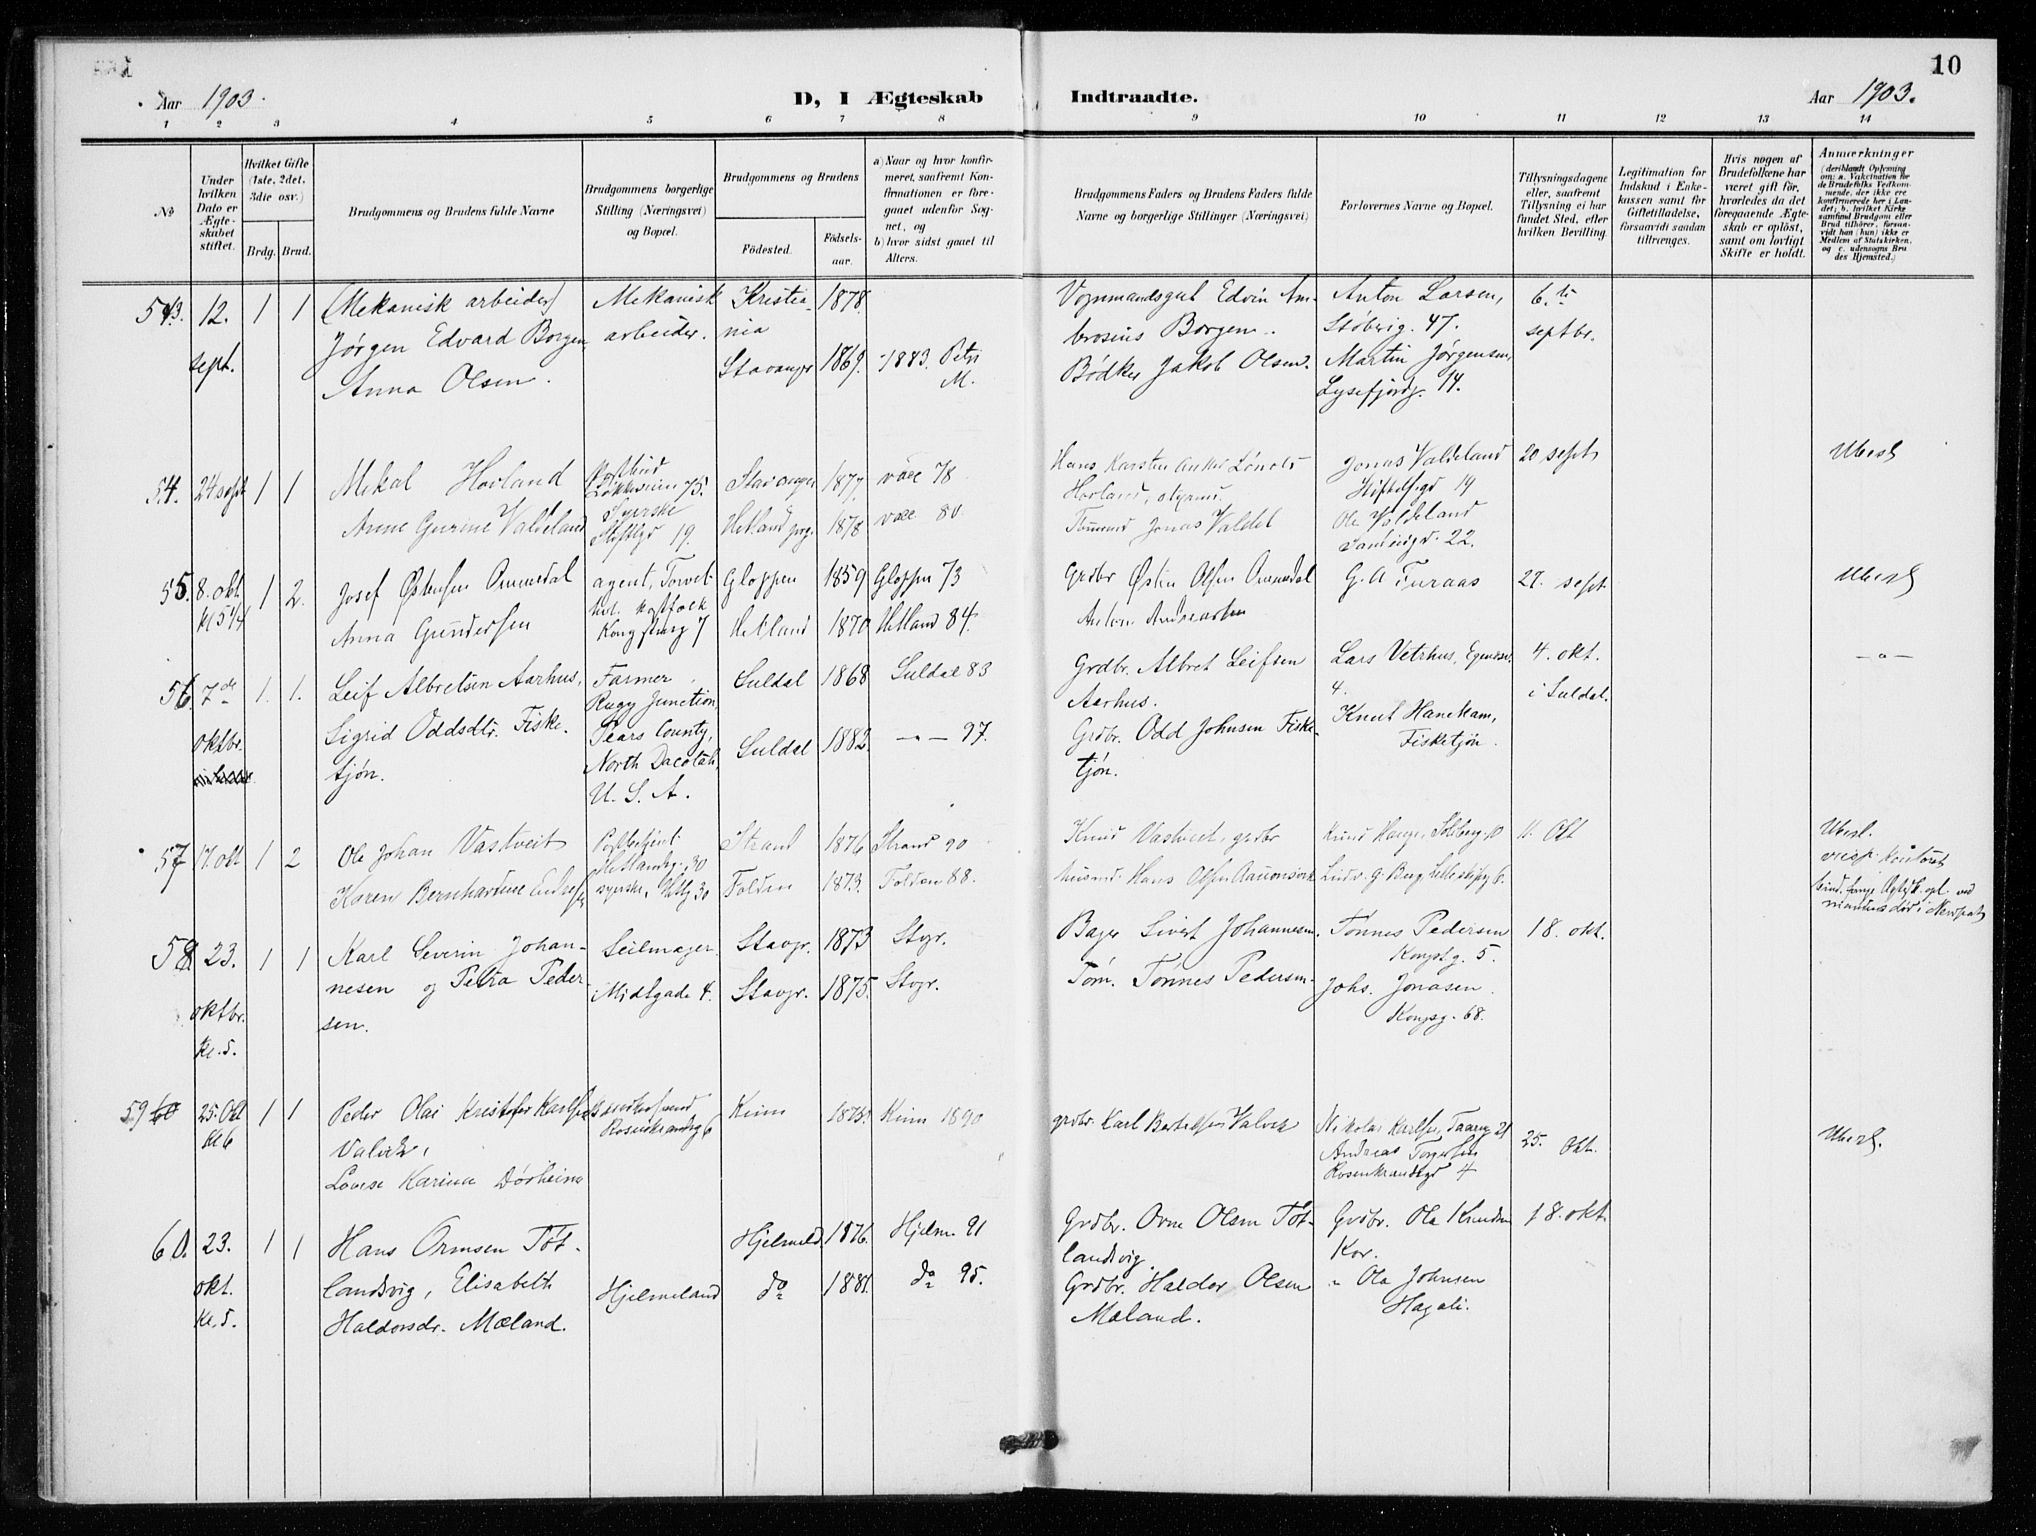 10
Aar 1903. D, I Ægteskab Indtraadte. Aar 1903.
1 2 3 4 5 6 7 8 9 10 11 12 13 14
No
Under hvilken Dato er Ægteskabet stiftet.
Hvilket Gifte (1ste, 2det, 3die osv.)
Brdg. Brud.
Brudgommens og Brudens fulde Navne
Brudgommens borgerlige Stilling (Næringsvei) og Bopæl.
Brudgommens og Brudens
Fødested. Fødselsaar.
a) Naar og hvor konfirmeret, saafremt Konfirmationen er foregaaet udenfor Sognet, og
b) hvor sidst gaaet til Alters.
Brudgommens Faders og Brudens Faders fulde Navne og borgerlige Stillinger (Næringsvei)
Forlovernes Navne og Bopæl.
Tillysningsdagene eller, saafremt Tillysning ei har fundet Sted, efter hvilken Bevilling.
Legitimation for Indskud i Enkekassen samt for Giftetilladelse, forsaavidt saadan tiltrænges.
Hvis nogen af Brudefolkene har været gift før, hvorledes da det foregaaende Ægteskab er opløst, samt om lovligt Skifte er holdt.
Anmærkninger
(deriblandt Oplysning om: a. Vaccination for de Brudefolks Vedkommende, der ikke ere konfirmerede her i Landet; b. hvilket Kirkesamfund Brudgom eller Brud tilhører, forsaavidt han (hun) ikke er Medlem af Statskirken, og c. udensogns Brudes Hjemsted.)
53. 12. 1 1 (Mekanisk arbeider) Mekanisk Kristia- 1878 Vognmandsgut Edvin Am- Anton Larsen, 6.te
sept. Jørgen Edvard Borgen, arbeider. nia brosius Borgen. Støberig. 47. septbr.
Anna Olsen. Stavanger 1869. 1883. Petri M. Bødker Jakob Olsen. Martin Jørgensen, Lysefjordg. 14.
54. 24 sept 1 1 Mikal Hovland Løkkeveien 75. Stavanger 1877 vacc 78 Hans Karsten Jonas Valdeland 20 sept Ubesl
Hovland, Stiftelsegd 19
Anne Gurine Valdeland Syerske 19. Hetland 1878 vacc 80 Jonas Valdel Ole Valdeland 22.
55. 8. okt. 1 2. Josef Østensen Ommedal agent, Torvet Gloppen 1859 Gloppen 73 Grdbr Østen Olsen Ommedal G. A Furaas 27. sept Ubesl
kl 5 1/4 Anna Gundersen Kongsburg 7 Hetland 1870 Hetland 84. Andreassen
56. 7de 1. 1. Leif Albretsen Aarhus, Farmer Suldal 1868 Suldal 83 Grdbr. Albret Leifsen Lars Vetrhus, 4. okt. — „ —
Rugy Junction, Aarhus. 4. i Suldal.
oktbr. Sigrid Oddsdtr. Fiske- Pears County, Suldal 1882. — „ — 97. Grdbr. Odd Johnsen Fiske- Knut Hanekam,
tjøn. North Dacotah, tjøn. Fisketjøn.
U. S. A.
57 17. okt 1 2 Ole Johan Vastveit Postbetjent Strand 1876 Strand 90 Knud Vastveit, grdbr Knud Hauge, Solbergg 10 11. Okt Ubesl.
Hetlandsg. 30
Karen Bernhardine syerske, 30 Folden 1873. Folden 88. husmd. Hans Olsen 6.
58 23. 1 1 Karl Severin Johan- Seilmager Stavgr. 1873 Stgr. Bager Sivert Johannesen. Tønnes Pedersen 18. okt.
Kongsg. 5.
oktbr. nesen og Petra Peder- i Midtgade 4. Stavgr. 1875. Stgr. Tøm. Tønnes Pedersen. Johs. Jonasen.
kl. 5. sen. Kongsg. 68.
59 25. Okt 1 1 Peder Olai Kristofer Karlsen Kinn 1873 Kinn 1890 grdbr. Karl Bertelsen Valvik Nikolai Karlsen, 21 25. Okt. Ubesl.
Kl 6 Valvik, Rosenkrandsg 6 Andreas Torgersen
Lovise Karina Dørheim Rosenkrandsgd 4
60. 23. 1 1 Hans Ormsen Tøt- Hjelmeld. 1876. Hjelm. 91 Grdbr. Orm Olsen Tøt- Grdbr. Ola Knudsen 18. okt.
landsvig. Kor.
okt. landsvig, Elisabeth Hjelmeland do 1881. do 95. Grdbr. Haldor Olsen „ Ola Johnsen
kl. 5. Haldorsdr. Mæland. Mæland. Hagali.